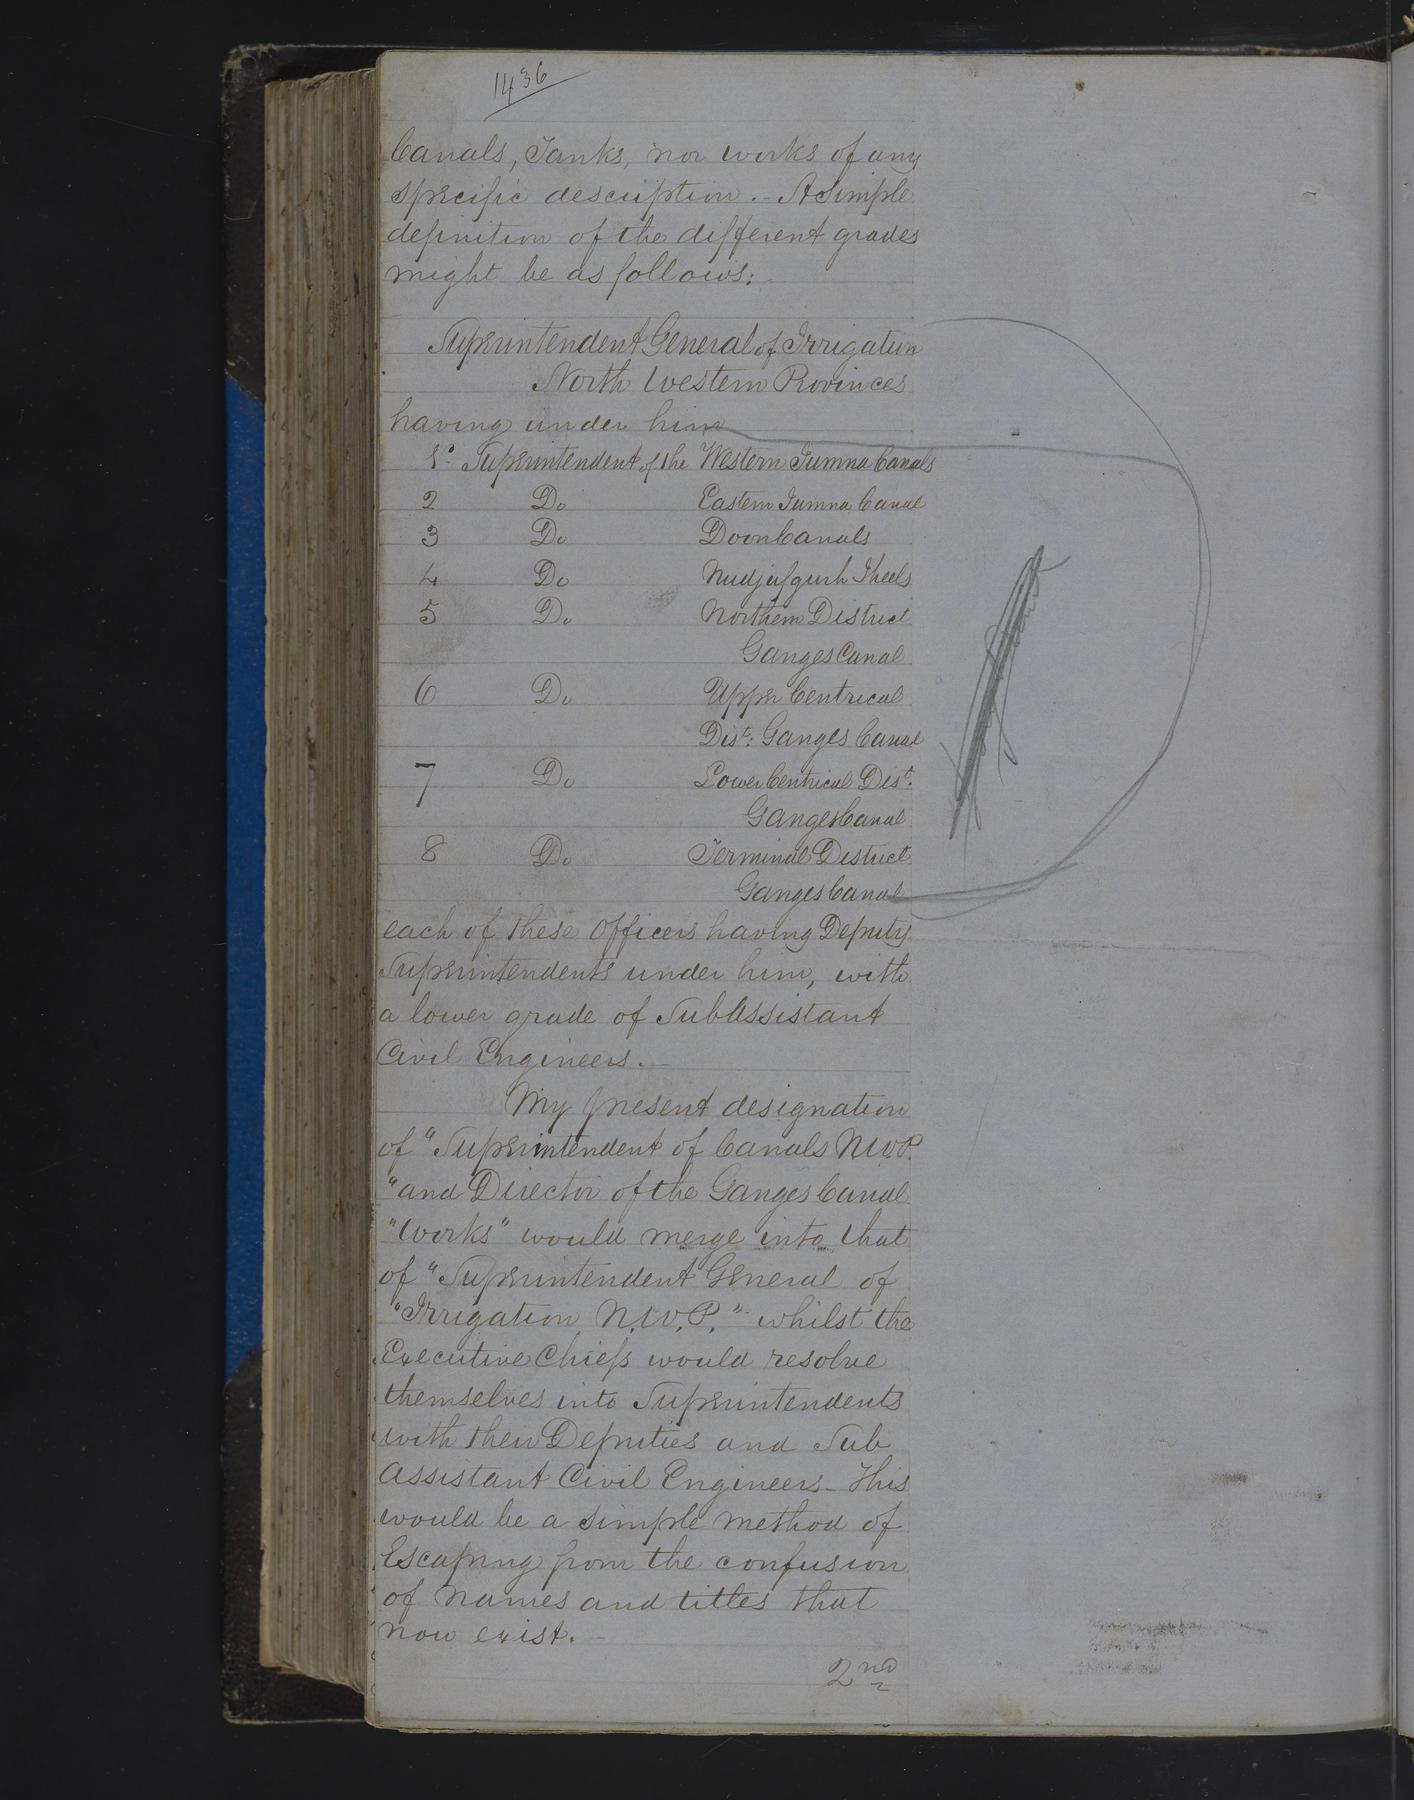 1436
Canals, Tanks, nor works of any
specific description. - A Simple
definition of the different grades
might be as follows: -
Superintendent General of Irrigation
North Western Provinces
having under him
1º Superintendent of the Western Jumna Canals
2 Do Eastern Jumna Canal
3 Do Doon Canals
4 Do Nudjufgurh Jheels
5 Do Northern District
Ganges Canal
6 Do Upper Centrical
Dist: Ganges Canal
7 Do Lower Centrical Dist:
Ganges Canal
8 Do Terminal District
Ganges Canal
each of these Officers having Deputy
Superintendents under him, with
a lower grade of Sub Assistant
Civil Engineers. -
My present designation
of "Superintendent of Canals N.W.P.
"and Director of the Ganges Canal
"Works" would merge into that
of "Superintendent General of
"Irrigation N.W.P." whilst the
Executive Chiefs would resolve
themselves into Superintendents
with their Deputies and Sub
Assistant Civil Engineers - This
would be a simple method of
Escaping from the confusion
of names and titles that
now exist. -
2nd